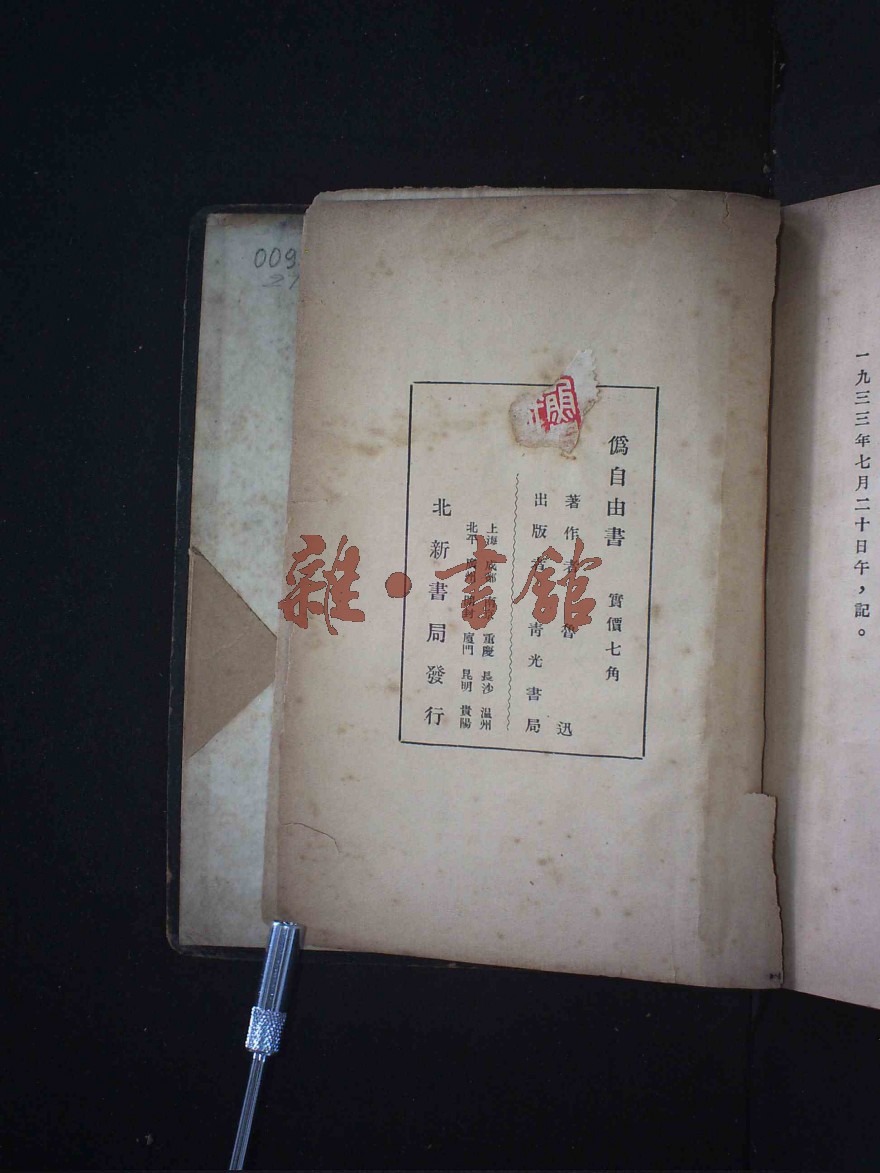 一九三三年七月二十日午，記。
僞自由書　實價七角
著作者　魯迅
出版者　青光書局
上海　成都　重慶　長沙　温州
北平　開封　廈門　昆明　貴陽
北新書局發行
雜·書館
009